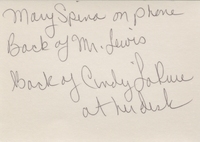 Mary Spena on phone
Back of Mr. Lewis
Back of Cindy LaRue
at her desk